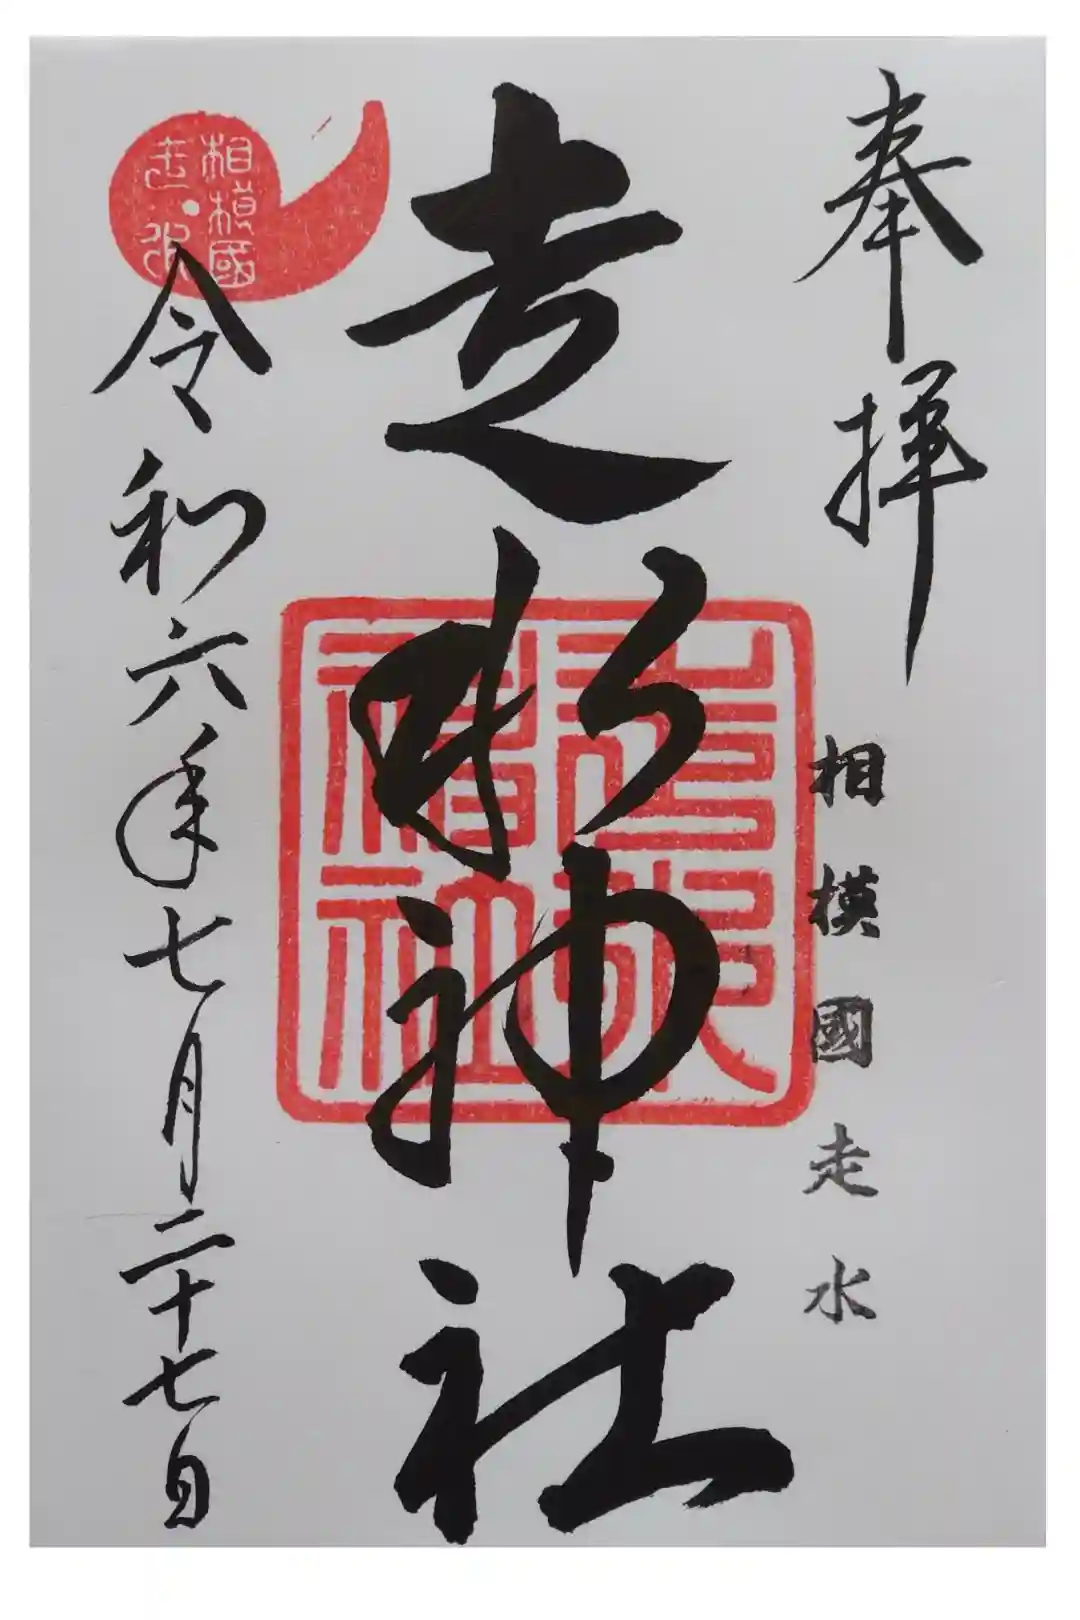 奉拝
相模國走水
走水神社
走水神社
相模國
走水
令和六年七月二十七日